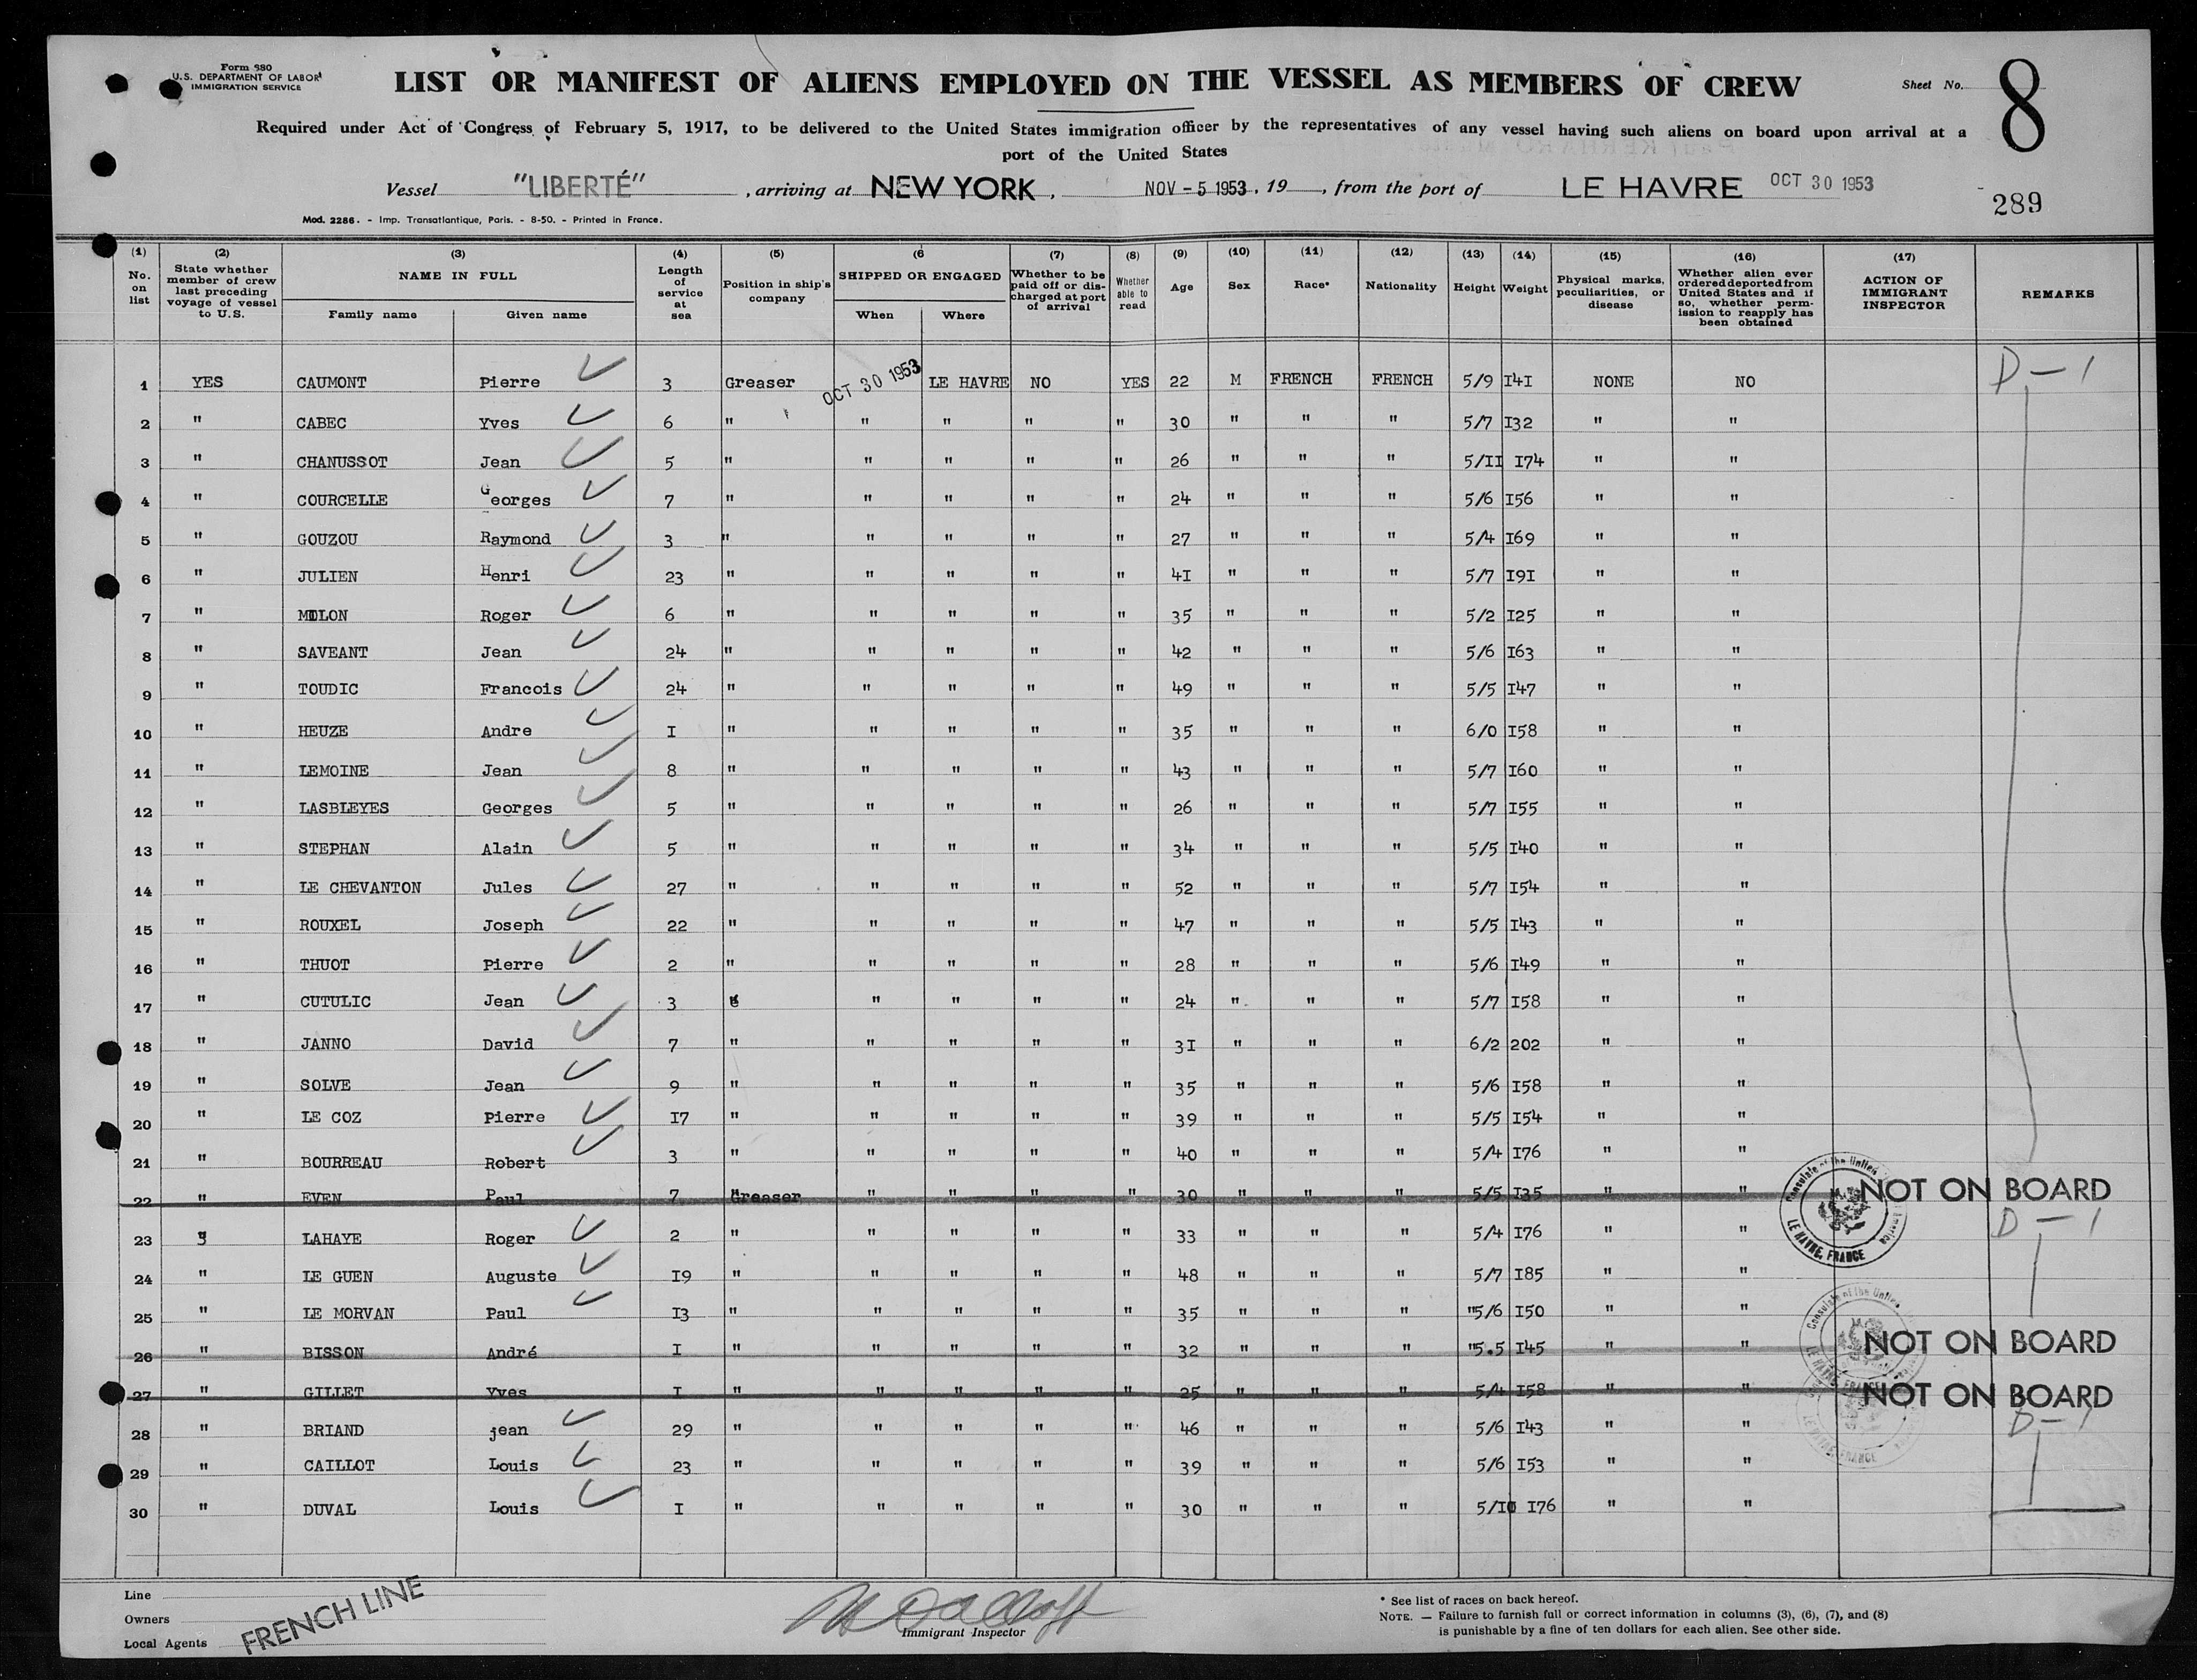 Form 680
U.S. DEPARTMENT OF LABOR
IMMIGRATION SERVICE
LIST OR MANIFEST OF ALIENS EMPLOYED ON THE VESSEL AS MEMBERS OF CREW
Sheet No. 8
Required under Act of Congress of February 5, 1917, to be delivered to the United States immigration officer by the representatives of any vessel having such aliens on board upon arrival at a
port of the United States
Vessel "LIBERTÉ", arriving at NEW YORK, NOV - 5 1953, 19 , from the port of LE HAVRE OCT 30 1953
289
Mod. 2286. - Imp. Transatlantique, Paris. - 8-50. - Printed in France.
(1) No. on list (2) State whether member of crew last preceding voyage of vessel to U.S. (3) NAME IN FULL Family name Given name (4) Length of service at sea (5) Position in ship's company (6 SHIPPED OR ENGAGED When Where (7) Whether to be paid off or discharged at port of arrival (8) Whether able to read (9) Age (10) Sex (11) Race* (12) Nationality (13) Height (14) Weight (15) Physical marks, peculiarities, or disease (16) Whether alien ever ordered deported from United States and if so, whether permission to reapply has been obtained (17) ACTION OF IMMIGRANT INSPECTOR REMARKS
1 YES CAUMONT Pierre 3 Greaser OCT 30 1953 LE HAVRE NO YES 22 M FRENCH FRENCH 5/9 I4I NONE NO D-1
2 " CABEC Yves 6 " " " " " 30 " " " 5/7 I32 " "
3 " CHANUSSOT Jean 5 " " " " " 26 " " " 5/II I74 " "
4 " COURCELLE Georges 7 " " " " " 24 " " " 5/6 I56 " "
5 " GOUZOU Raymond 3 " " " " " 27 " " " 5/4 I69 " "
6 " JULIEN Henri 23 " " " " " 4I " " " 5/7 I9I " "
7 " MILON Roger 6 " " " " " 35 " " " 5/2 I25 " "
8 " SAVEANT Jean 24 " " " " " 42 " " " 5/6 I63 " "
9 " TOUDIC Francois 24 " " " " " 49 " " " 5/5 I47 " "
10 " HEUZE Andre I " " " " " 35 " " " 6/0 I58 " "
11 " LEMOINE Jean 8 " " " " " 43 " " " 5/7 I60 " "
12 " LASBLEYES Georges 5 " " " " " 26 " " " 5/7 I55 " "
13 " STEPHAN Alain 5 " " " " " 34 " " " 5/5 I40 " "
14 " LE CHEVANTON Jules 27 " " " " " 52 " " " 5/7 I54 " "
15 " ROUXEL Joseph 22 " " " " " 47 " " " 5/5 I43 " "
16 " THUOT Pierre 2 " " " " " 28 " " " 5/6 I49 " "
17 " CUTULIC Jean 3 " " " " 24 " " " 5/7 I58 " "
18 " JANNO David 7 " " " " " 3I " " " 6/2 202 " "
19 " SOLVE Jean 9 " " " " " 35 " " " 5/6 I58 " "
20 " LE COZ Pierre I7 " " " " " 39 " " " 5/5 I54 " "
21 " BOURREAU Robert 3 " " " " " 40 " " " 5/4 I76 " "
22 " EVEN Paul 7 Greaser " " " " 30 " " " 5/5 I35 " " NOT ON BOARD
23 LAHAYE Roger 2 " " " " " 33 " " " 5/4 I76 " " D-1
24 " LE GUEN Auguste I9 " " " " " 48 " " " 5/7 I85 " "
25 " LE MORVAN Paul I3 " " " " " 35 " " " "5/6 I50 " "
26 " BISSON André I " " " " " 32 " " " "5.5 I45 " " NOT ON BOARD
27 " GILLET Yves I " " " " " 25 " " " 5/4 I58 " " NOT ON BOARD
28 " BRIAND jean 29 " " " " " 46 " " " 5/6 I43 " " D-1
29 " CAILLOT Louis 23 " " " " " 39 " " " 5/6 I53 " "
30 " DUVAL Louis I " " " " " 30 " " " 5/I0 I76 " "
Consulate of the United
LE HAVRE, FRANCE
Consulate of the United
LE HAVRE, FRANCE
Line
Owners
Local Agents
FRENCH LINE
Immigrant Inspector
* See list of races on back hereof.
NOTE. — Failure to furnish full or correct information in columns (3), (6), (7), and (8)
is punishable by a fine of ten dollars for each alien. See other side.